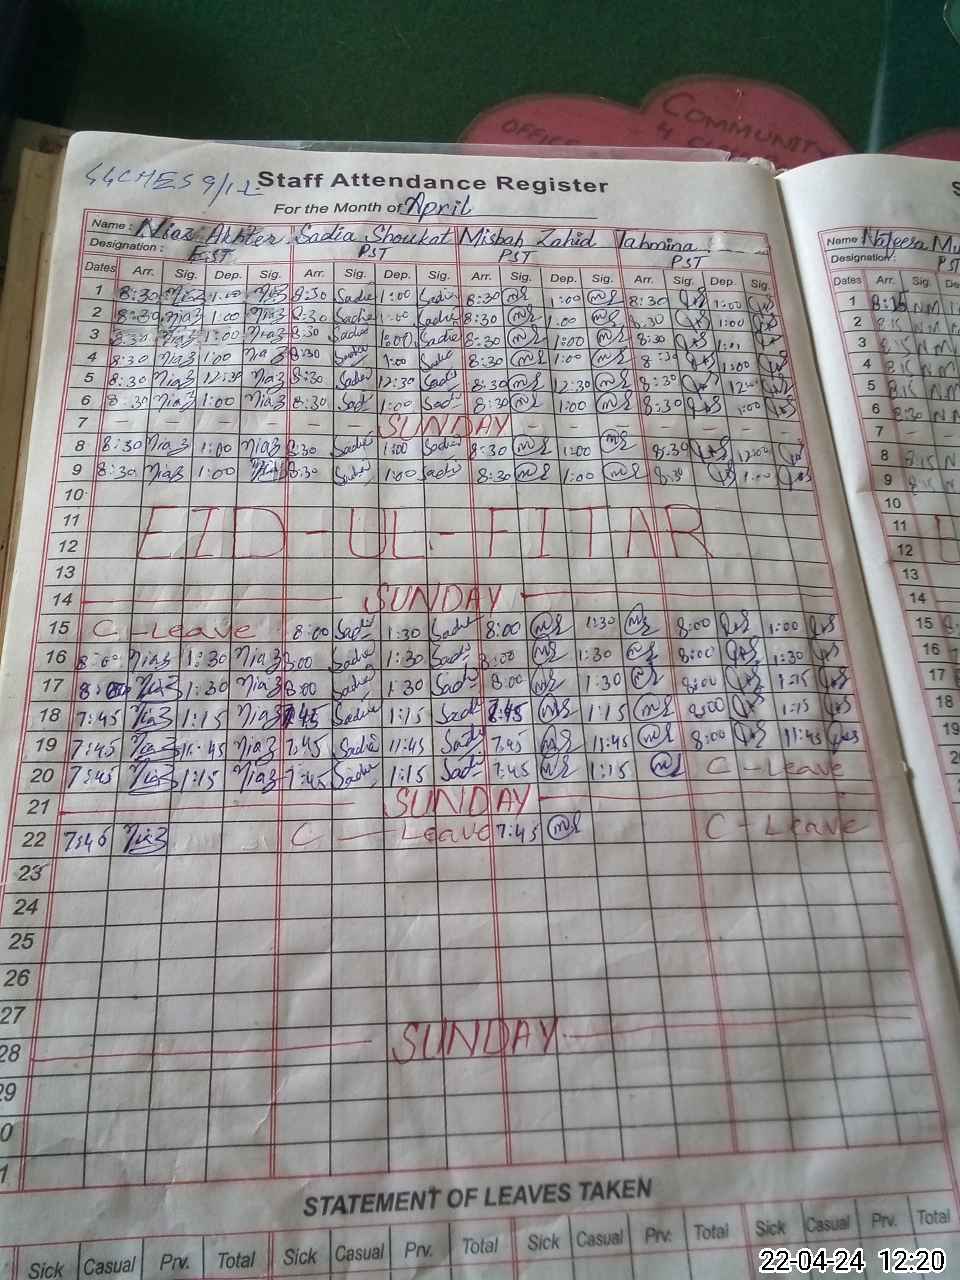 OFFICE
COMMUNITY
4
GGCMES 9/1-L Staff Attendance Register
For the Month of April
Name: Niaz Akhter Sadia Shoukat Misbah Zahid Tahmina Name
Designation: EST PST PST PST Designation: PST
Dates Arr. Sig. Dep. Sig. Arr. Sig. Dep. Sig. Arr. Sig. Dep. Sig. Arr. Sig. Dep. Sig. Dates Arr. Sig.
1 8:30 Niaz 1:00 Niaz 8:30 Sadia 1:00 Sadia 8:30 1:00 8:30 1:00 1 8:15 N.M
2 8:30 Niaz 1:00 Niaz 8:30 Sadia 1:00 Sadia 8:30 1:00 8:30 1:00 2 8:15 N.M
3 8:30 Niaz 1:00 Niaz 8:30 Sadia 1:00 Sadia 8:30 1:00 8:30 3 8:15 N.M
4 8:30 Niaz 1:00 Niaz 8:30 Sadia 1:00 Sadia 8:30 1:00 8:30 1:00 4 8:15 N.M
5 8:30 Niaz 12:30 Niaz 8:30 Sadia 12:30 Sadia 8:30 12:30 8:30 5 8:15 N.M
6 8:30 Niaz 1:00 Niaz 8:30 Sadia 1:00 Sadia 8:30 1:00 8:30 1:00 6 8:30 N.M
7 SUNDAY 7
8 8:30 Niaz 1:00 Niaz 8:30 Sadia 1:00 Sadia 8:30 1:00 8:30 8 8:15 N
9 8:30 Niaz 1:00 Niaz 8:30 Sadia 1:00 Sadia 8:30 1:00 8:30 1:00 9 8:15 N
10 10
11 EID-UL-FITAR 11
12 12
13 13
14 SUNDAY 14
15 C-Leave 8:00 Sadia 1:30 Sadia 8:00 1:30 8:00 1:00 15
16 8:00 Niaz 1:30 Niaz 8:00 Sadia 1:30 Sadia 8:00 1:30 8:00 1:30 16
17 8:00 Niaz 1:30 Niaz 8:00 Sadia 1:30 Sadia 8:00 1:30 8:00 1:15 17
18 7:45 Niaz 1:15 Niaz 7:45 Sadia 1:15 Sadia 7:45 1:15 8:00 1:15 18
19 7:45 Niaz 11:45 Niaz 7:45 Sadia 11:45 Sadia 7:45 11:45 8:00 11:45 19
20 7:45 Niaz 1:15 Niaz 7:45 Sadia 1:15 Sadia 7:45 1:15 C-Leave
21 SUNDAY
22 7:45 Niaz C-Leave 7:45 C-Leave
23
24
25
26
27
28 SUNDAY
29
0
1
STATEMENT OF LEAVES TAKEN
Sick Casual Prv. Total Sick Casual Prv. Total Sick Casual Prv. Total Sick Casual Prv. Total
22-04-24 12:20